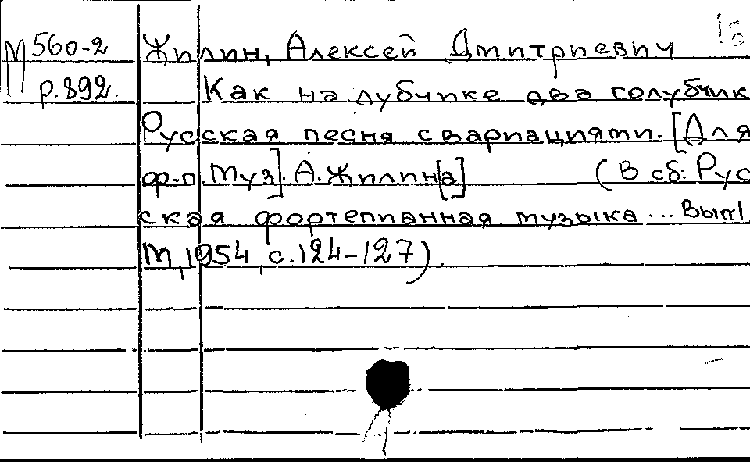 М 560-2 Жилин, Алексей Дмитриевич
р.892. Как на дубчике два голубчик
Русская песня с вариациями. [Для
ф-п. Муз]. А. Жилин[а] (В сб: Рус
ская фортепианная музыка... Вып1
М, 1954, с.124-127).